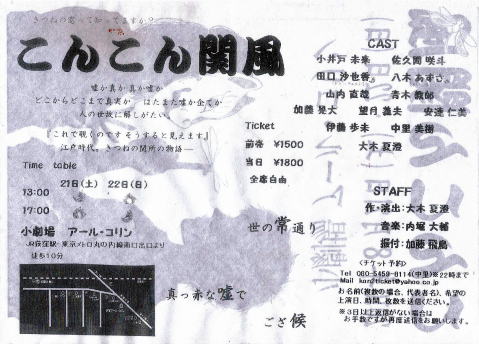 きつねの窓って知ってますか?
こんこん関風
嘘か真か真か嘘か
どこからどこまで真実か はたまた嘘か全てか
人の世故に解しがたい
『これで覗くのです そうすると見えます』
江戸時代、きつねの関所の物語―
Time table
21日(土) 22日(日)
13:00
17:00
小劇場 アール・コリン
JR荻窪駅・東京メトロ丸の内線南口出口より
徒歩10分
CAST
小井戸 未来 佐久間 咲斗
田口 沙也香 八木 あずさ
山内 直哉 青木 教師
加藤 晃大 望月 義夫 安達 仁美
伊藤 歩未 中里 美樹
大木 夏澄
Ticket
前売 ¥1500
当日 ¥1800
全席自由
STAFF
作・演出:大木 夏澄
音楽:内堀 大輔
振付:加藤 飛鳥
世の常通り
真っ赤な嘘で
ござ候
<チケット予約>
Tel 080-5459-8114(中里)※22時まで
Mail kon2ticket@yahoo.co.jp
お名前(複数の場合、代表者名)、希望の
上演日、時間、枚数を送信ください。
※3日以上返信がない場合は
お手数ですが再度送信をお願いします。